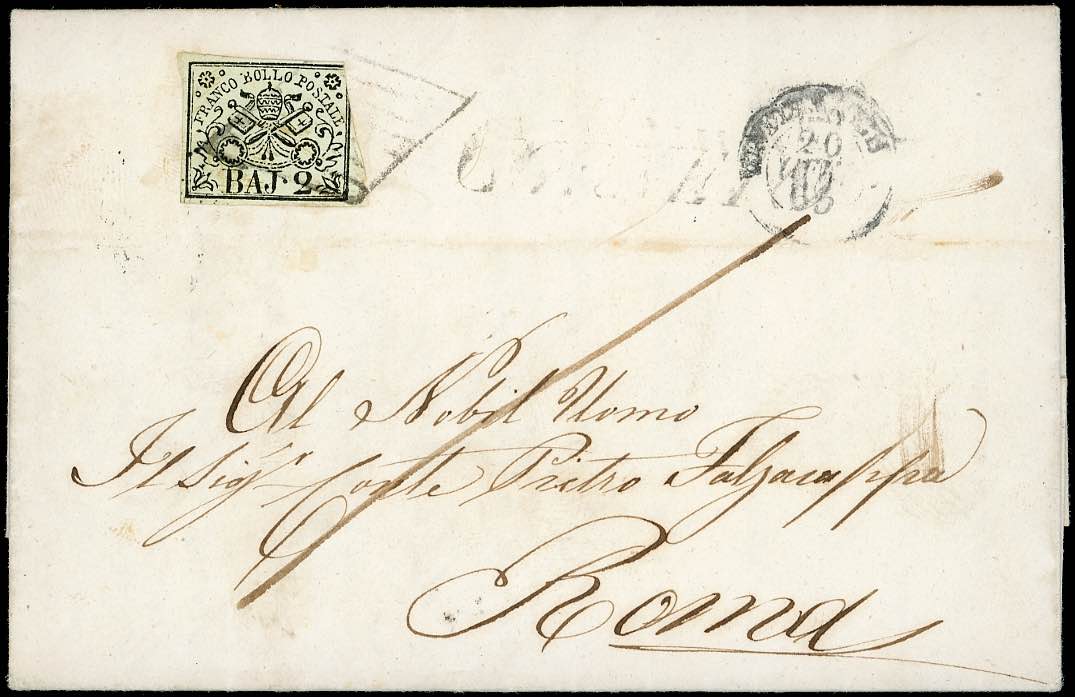 FRANCO BOLLO POSTALE
BAJ. 2
20
Al Nobil Uomo
Il Sigr. Conte Pietro Falzacappa
Roma